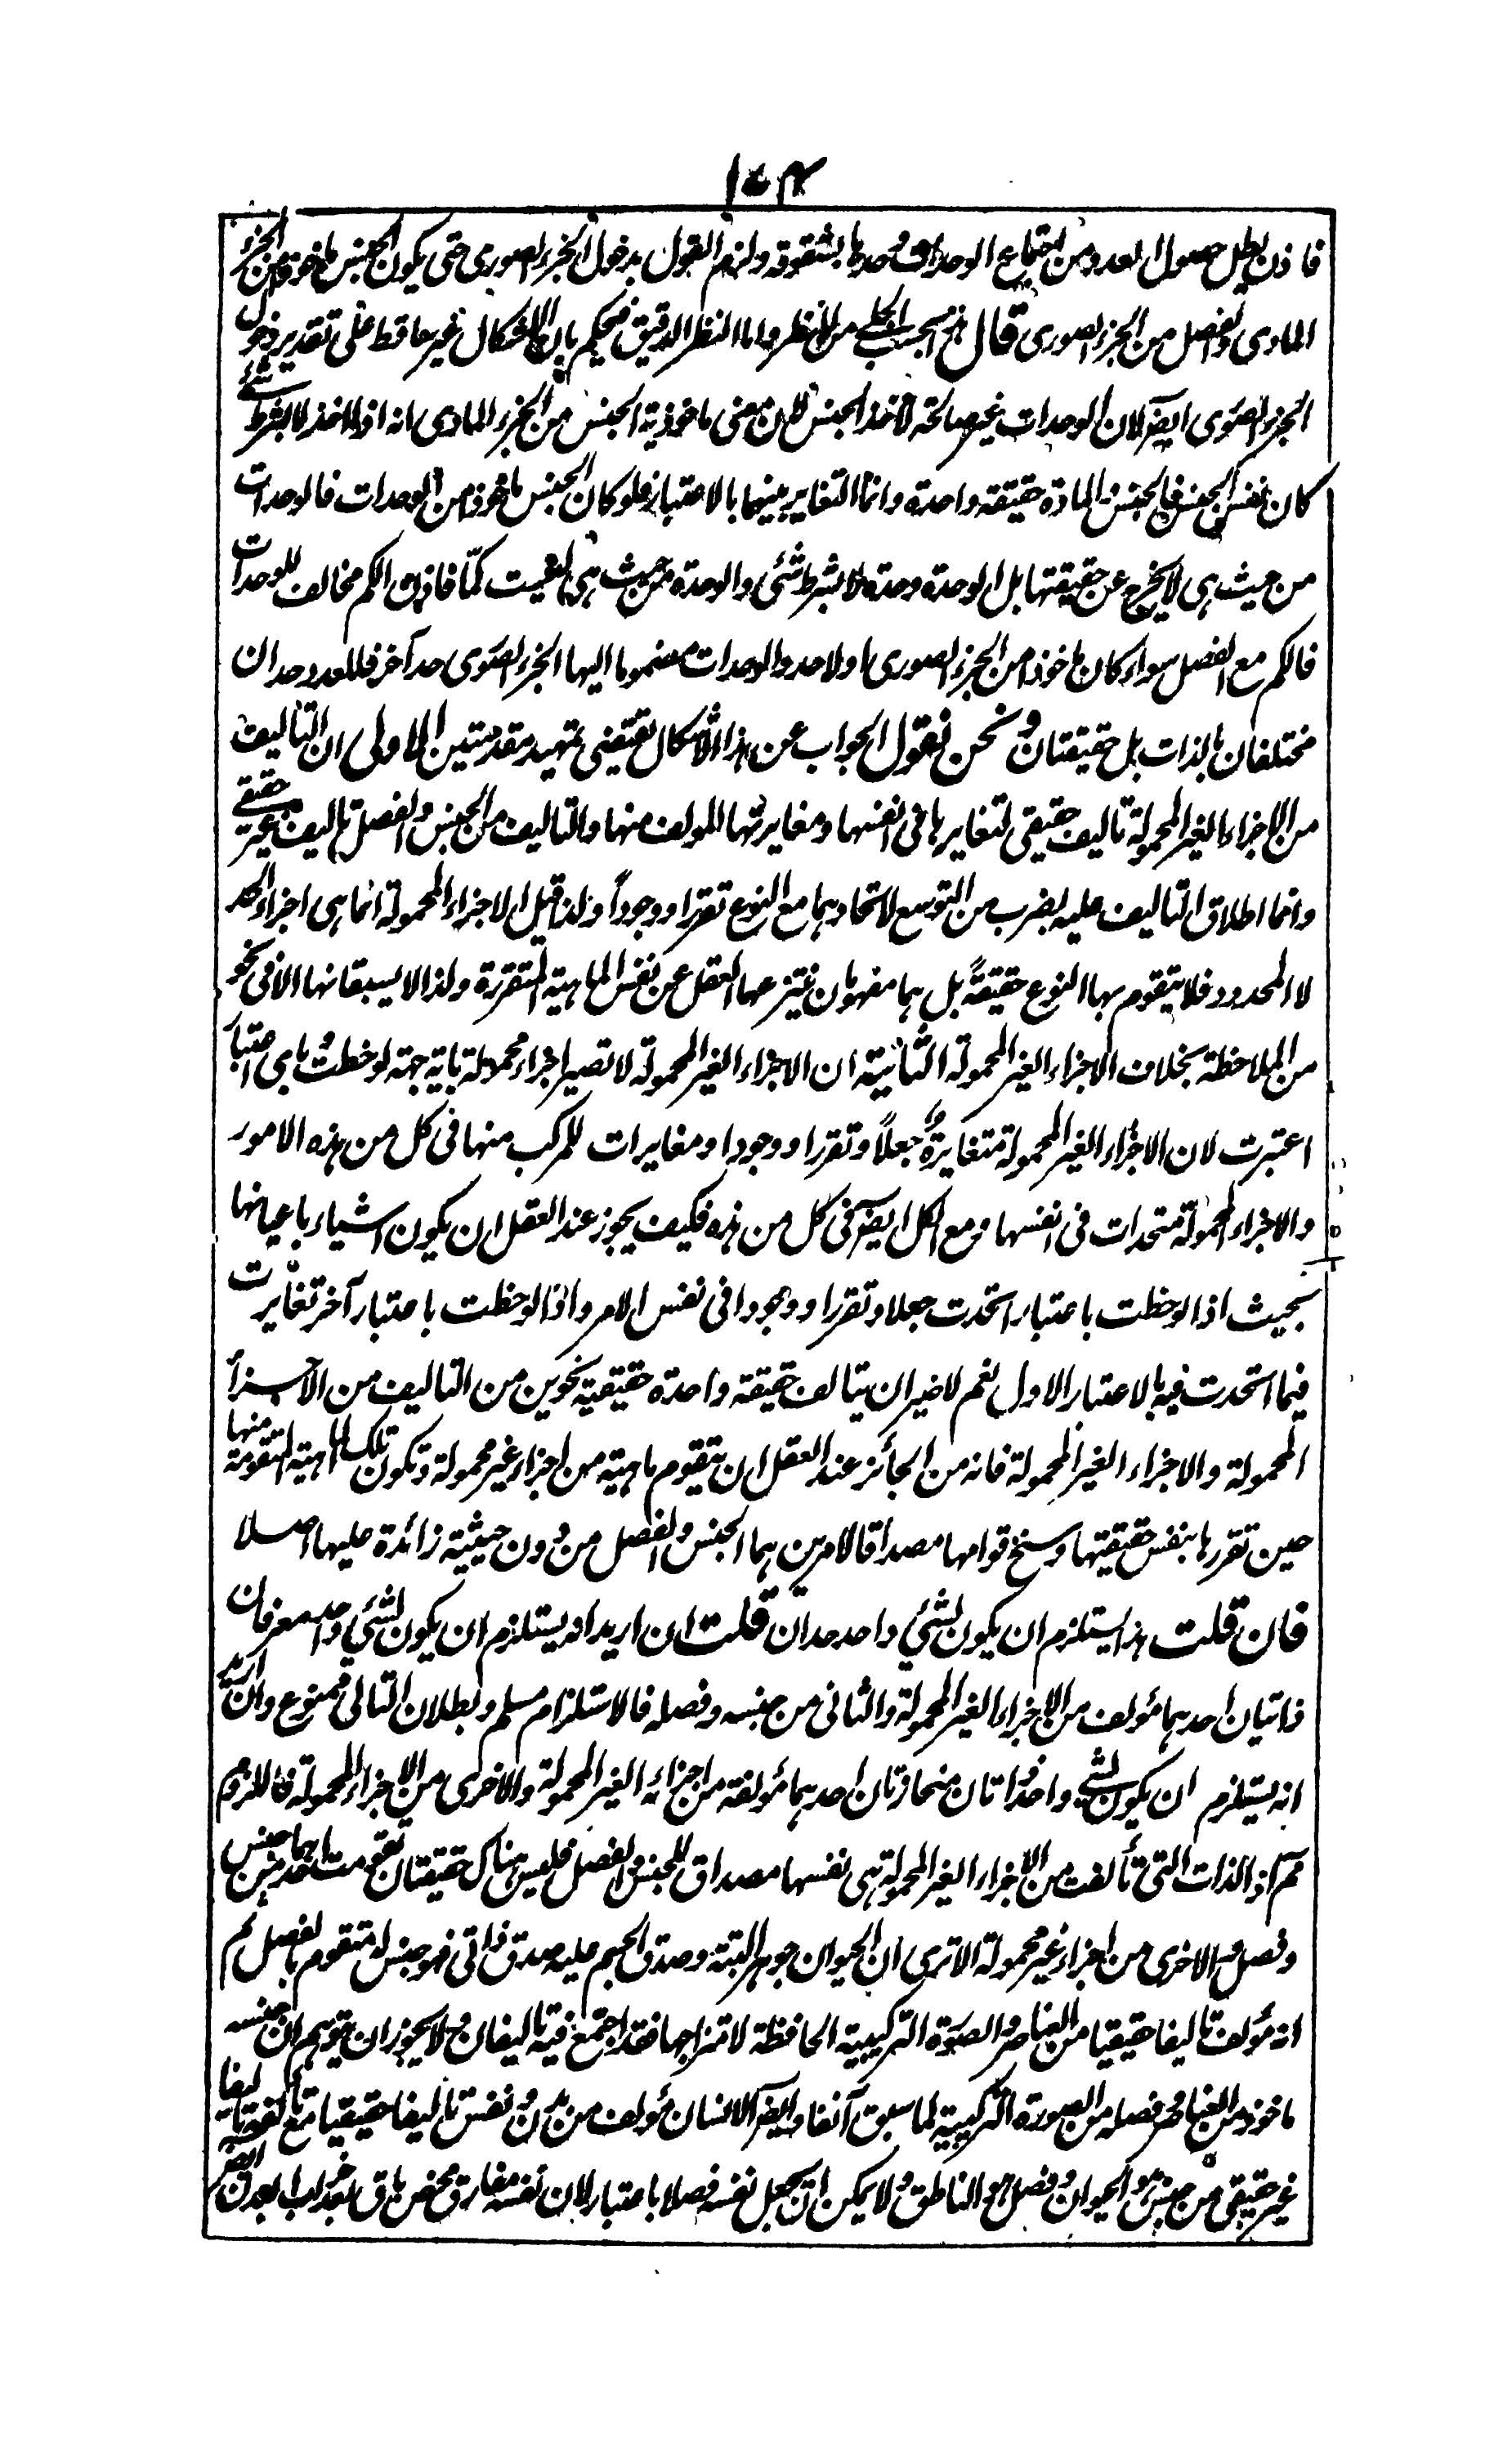 ١٠٤
فاذن بطل حصول العدد من اجتماع الوحدات وحدها بشقوقه ولزم القول بدخول الجزء الصورى حتى يكون الجنس ماخوذا من الجزء
المادى والفصل من الجزء الصورى قال هذا بحسب الجلى من النظر واما النظر الدقيق فيحكم بان الاشكال غير ساقط على تقدير دخول
الجزء الصورى ايضا لان الوحدات غير صالحة لاخذ الجنس لان معنى ماخوذية الجنس من الجزء المادى انه اذا اخذ لا بشرط شئ
كان نفس الجنس فالجنس والمادة حقيقة واحدة وانما التغاير بينهما بالاعتبار فلو كان الجنس ماخوذا من الوحدات فالوحدات
من حيث هى لا يخرج عن حقيقتها بل الوحدة وحدة لا بشرط شئ والوحدة من حيث هى ليست كمّا فاذن الكم مخالف للوحدات
فالكم مع الفصل سواء كان ماخوذا من الجزء الصورى اولا حد والوحدات مضموما اليها الجزء الصورى حد آخر فللعدد حدان
مختلفان بالذات بل حقيقتان ونحن نقول الجواب عن هذا الاشكال يقتضى تمهيد مقدمتين الاولى ان التاليف
من الاجزاء الغير المحمولة تاليف حقيقى لتغايرها فى انفسها ومغايرتها للمولف منها والتاليف من الجنس والفصل تاليف غير حقيقى
وانما اطلاق التاليف عليه بضرب من التوسع لاتحادهما مع النوع تقررا ووجوداً ولذا قيل الاجزاء المحمولة انما هى اجزاء الحد
لا المحدود فلا يتقوم بها النوع حقيقةً بل هما مفهومان ينتزعهما العقل عن نفس الماهية المتقررة ولذا لا يسبقانها الا فى نحو
من الملاحظة بخلاف الاجزاء الغير المحمولة الثانية ان الاجزاء الغير المحمولة لا تصير اجزاء محمولة باية جهة لوحظت وباى اعتبار
اعتبرت لان الاجزاء الغير المحمولة متغايرة جعلاً وتقررا ووجودا ومغايرات للمركب منها فى كل من هذه الامور
والاجزاء المحمولة متحدات فى انفسها ومع الكل ايضا فى كل من هذه فكيف يجوز عند العقل ان يكون اشياء باعيانها
بحيث اذا لوحظت باعتبار اتحدت جعلا وتقررا ووجودا فى نفس الامر واذا لوحظت باعتبار آخر تغايرت
فيما اتحدت فيه بالاعتبار الاول نعم لا ضير ان يتالف حقيقة واحدة حقيقية بنحوين من التاليف من الاجزاء
المحمولة والاجزاء الغير المحمولة فانه من الجائز عند العقل ان يتقوم ماهية من اجزاء غير محمولة وتكون تلك الماهية المتقومة منها
حين تقررها بنفس حقيقتها وسنخ قوامها مصداقا لامرين هما الجنس والفصل من دون حيثية زائدة عليها اصلا
فان قلت هذا يستلزم ان يكون لشئ واحد حدان قلت ان اريد انه يستلزم ان يكون لشئ واحد معرفان
ذاتيان احدهما مؤلف من الاجزاء الغير المحمولة والثانى من جنسه وفصله فالاستلزام مسلم وبطلان التالى ممنوع وان اريد
انه يستلزم ان يكون لشئ واحد ذاتان منحازتان احدهما مؤلفة من اجزائه الغير المحمولة والاخرى من الاجزاء المحمولة فاللزوم
مم اذ الذات التى تألفت من الاجزاء الغير المحمولة هى نفسها مصداق للجنس والفصل فليس هناك حقيقتان تقومت احدهما من جنس
وفصل والاخرى من اجزاء غير محمولة الا ترى ان الحيوان جوهر البتة وصدق الجسم عليه صدق ذاتى فهو جنس له متقوم بالفصل ثم
انه مؤلف تاليفا حقيقيا من العناصر والصورة التركيبية الحافظة لامتزاجها فقد اجتمع فيه تاليفان ولا يجوز ان يتوهم ان جنسه
ماخوذ من العناصر وفصله من الصورة التركيبية لما سبق آنفا وايضا الانسان مؤلف من بدن ونفس تاليفا حقيقيا مع تالفه تاليفا
غير حقيقى من جنس هو الحيوان وفصل هو الناطق ولا يمكن ان تجعل نفسه فصلا باعتبار لان نفسه مفارق محض باق بعد خراب البدن